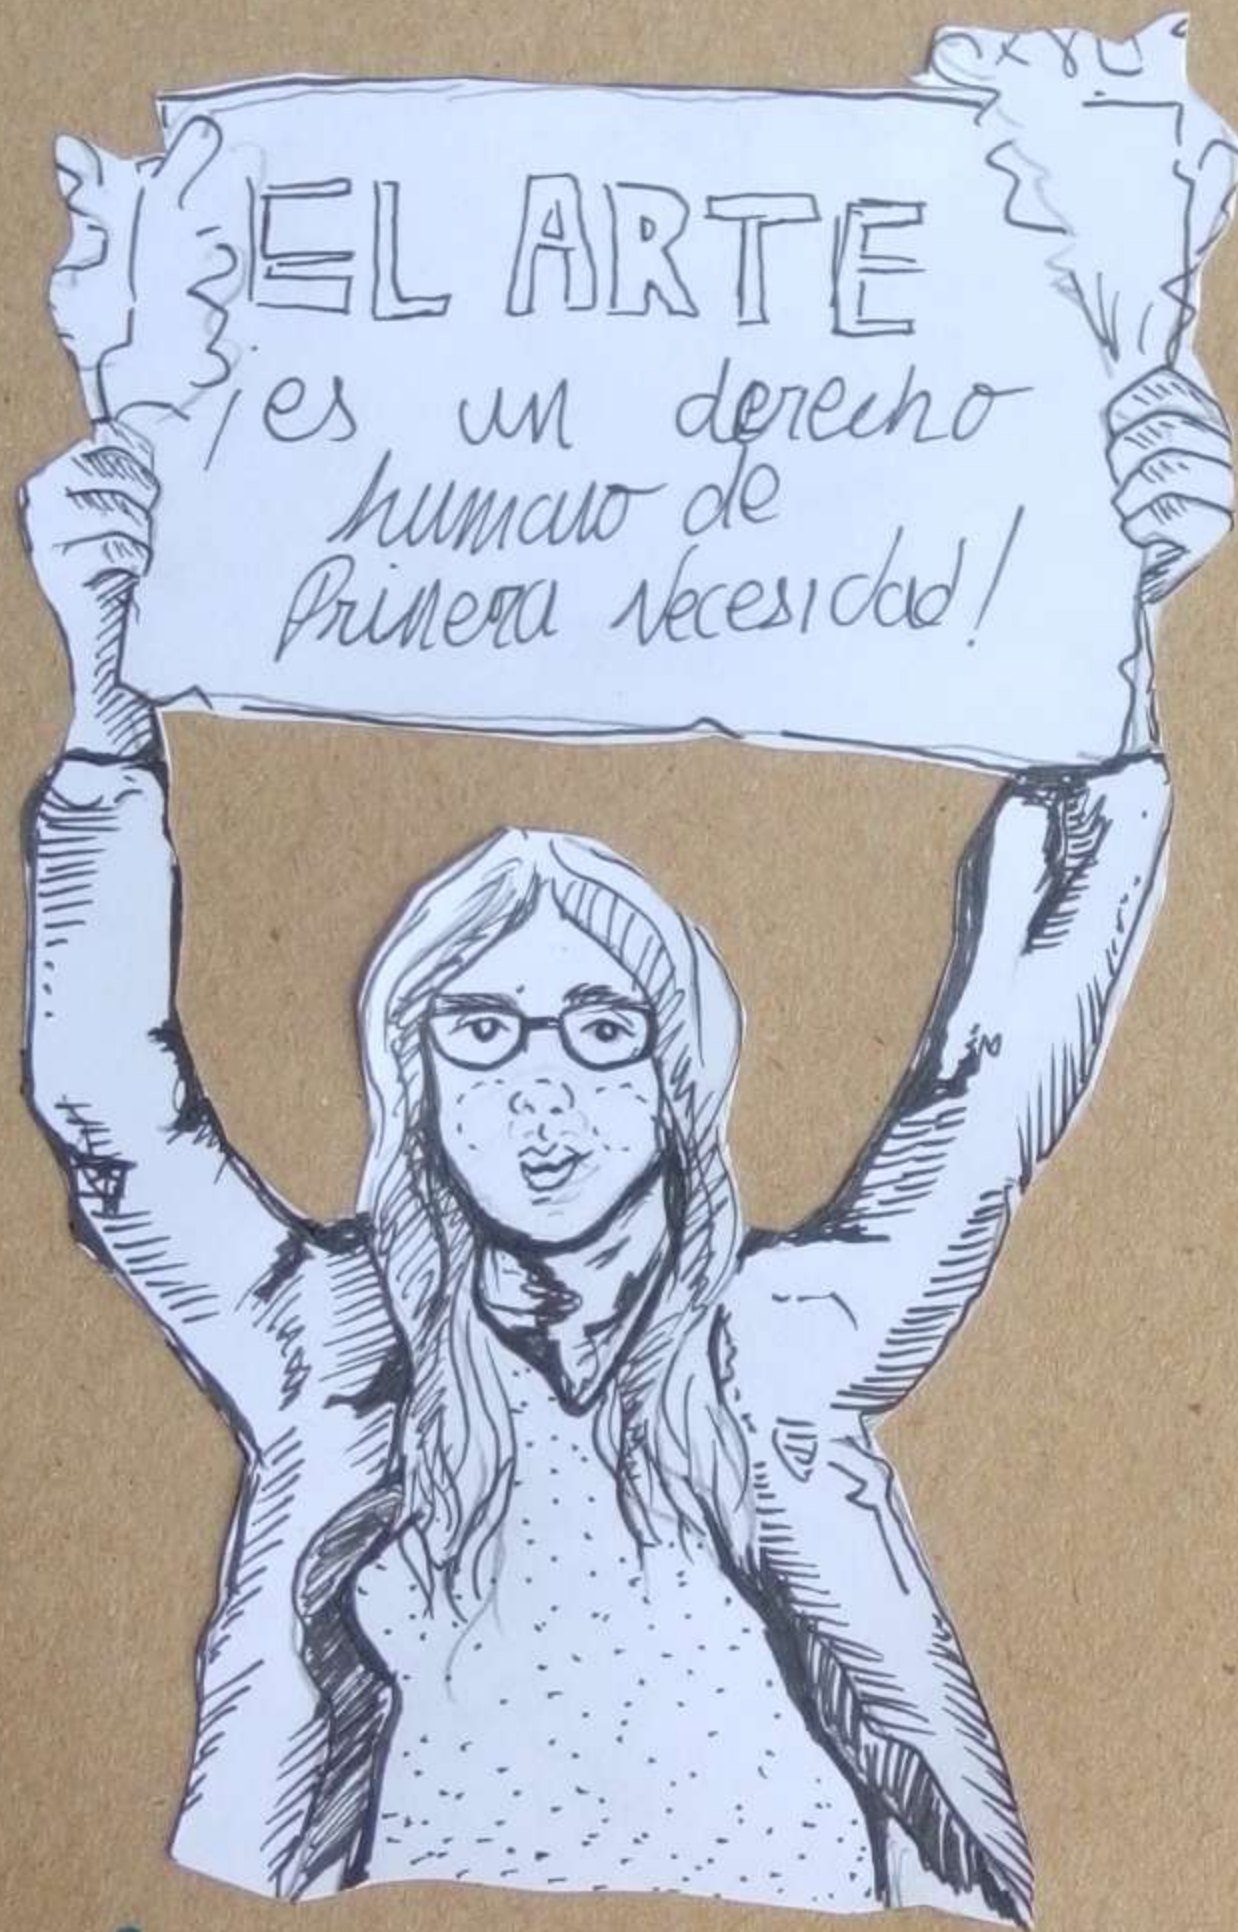 EL ARTE
¡es un derecho
humano de
Primera Necesidad!